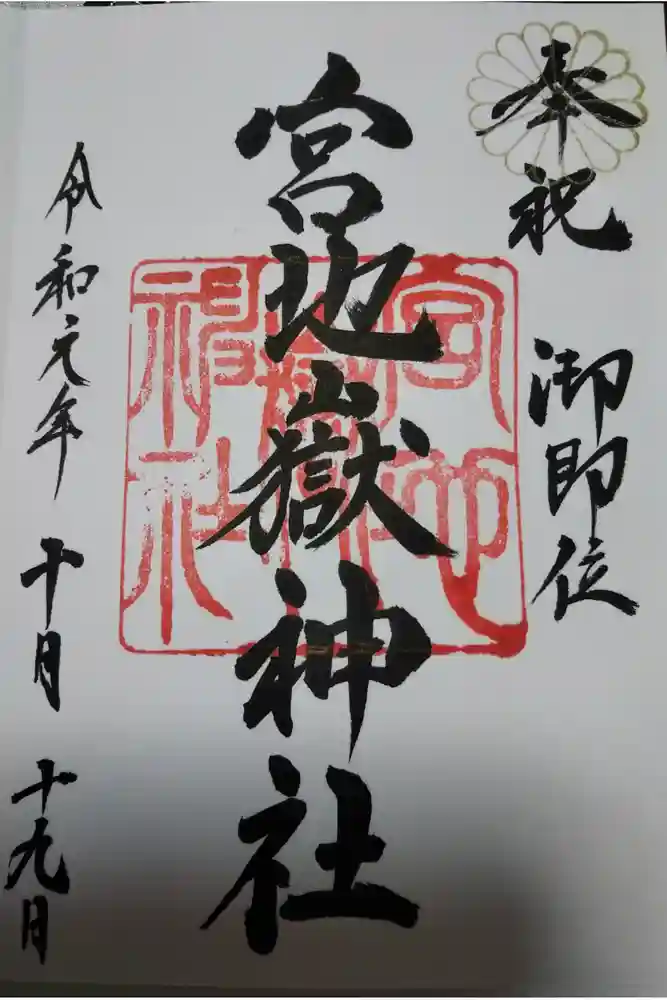 奉祝 御即位
宮地嶽神社
令和元年 十月 十九日
宮地嶽神社